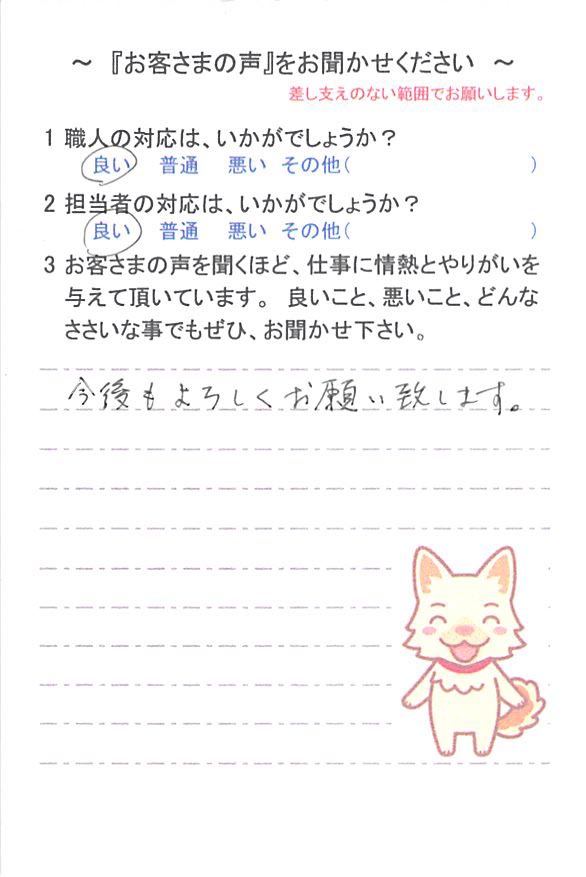 ～ 『お客さまの声』をお聞かせください ～
差し支えのない範囲でお願いします。
1 職人の対応は、いかがでしょうか？
良い 普通 悪い その他( )
2 担当者の対応は、いかがでしょうか？
良い 普通 悪い その他( )
3 お客さまの声を聞くほど、仕事に情熱とやりがいを
与えて頂いています。 良いこと、悪いこと、どんな
ささいな事でもぜひ、お聞かせ下さい。
今後もよろしくお願い致します。